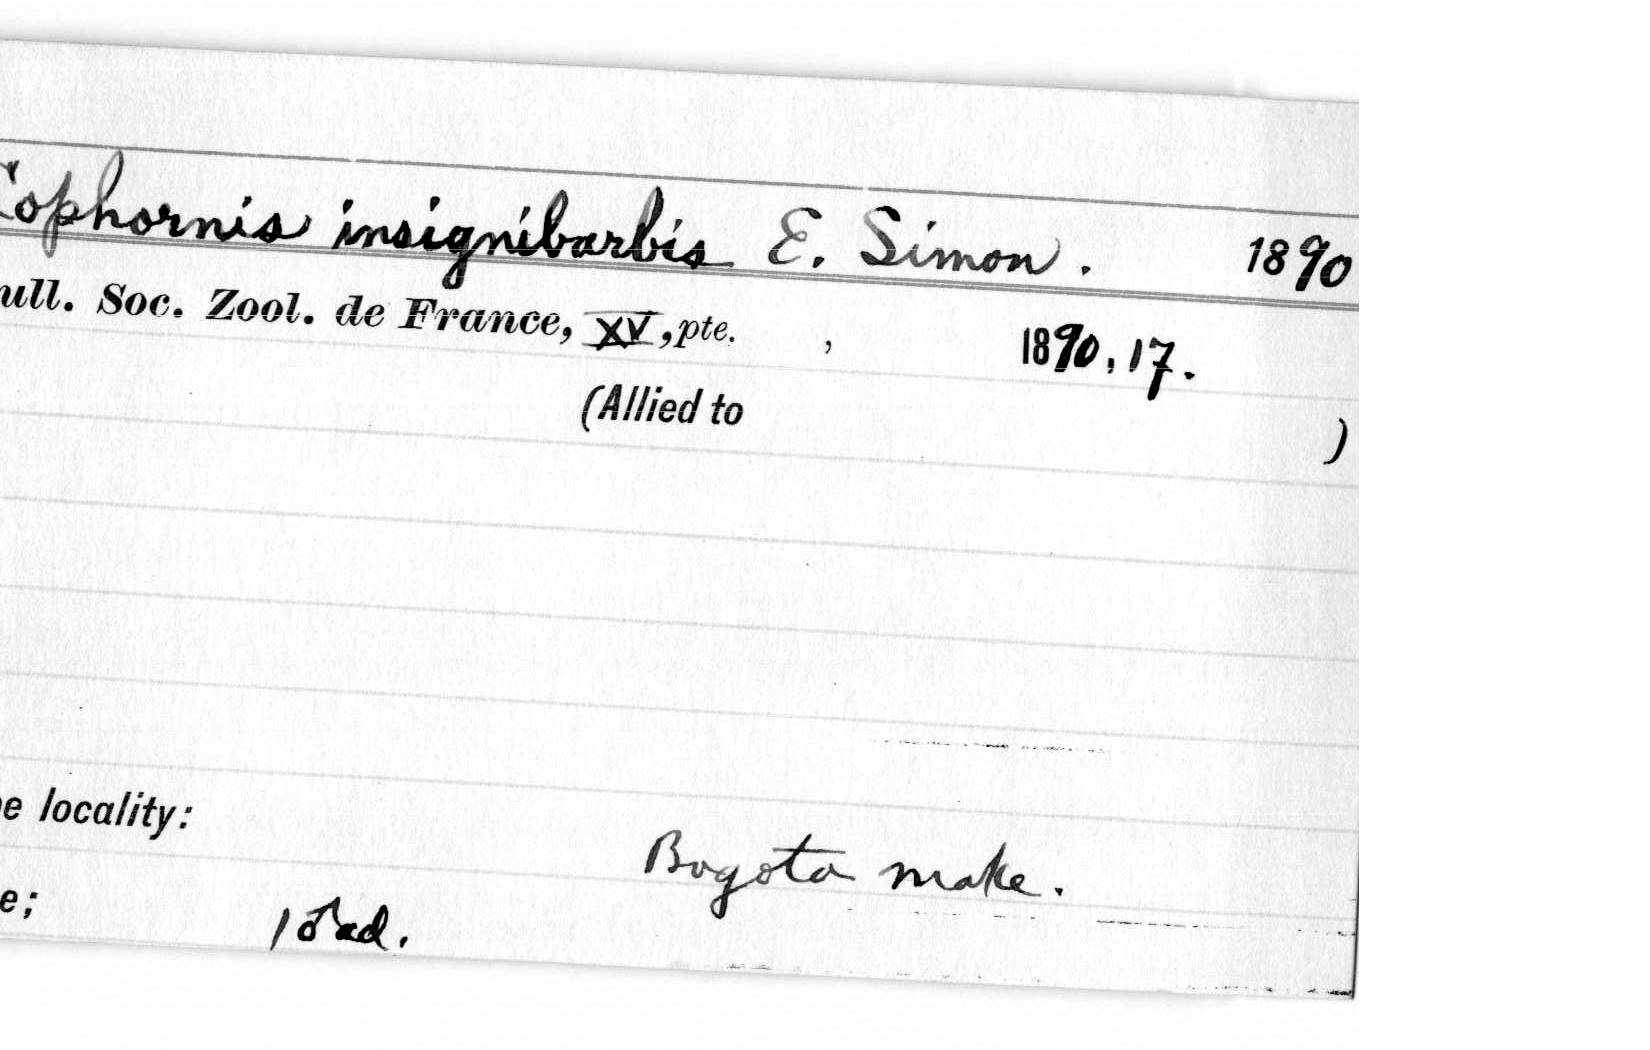 Cophornis insignibarbis E. Simon. 1890
ull. Soc. Zool. de France, XV, pte. , 1890, 17.
(Allied to )
e locality:
Bogota make.
e; 1 ♂ ad.